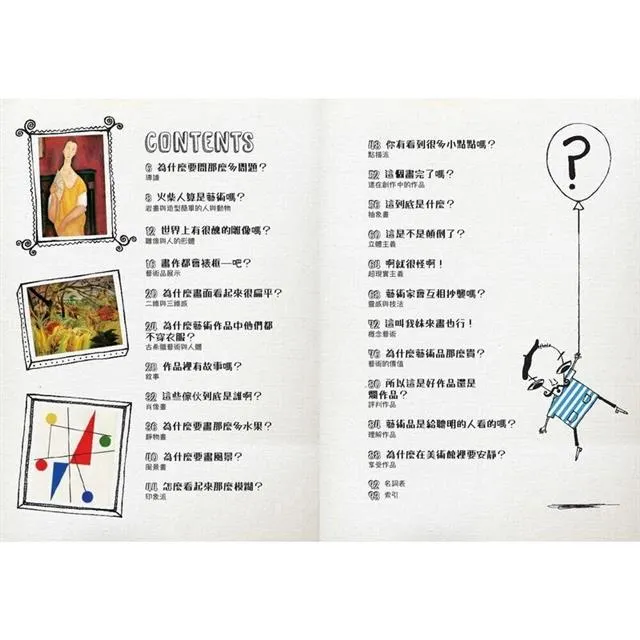 CONTENTS
6 為什麼要問那麼多問題？
導讀
8 火柴人算是藝術嗎？
岩畫與造型簡單的人與動物
12 世界上有很醜的雕像嗎？
雕像與人的形體
16 畫作都會裱框—吧？
藝術品展示
20 為什麼畫面看起來很扁平？
二維與三維感
24 為什麼藝術作品中他們都
不穿衣服？
古希臘藝術與人體
28 作品裡有故事嗎？
敘事
32 這些傢伙到底是誰啊？
肖像畫
36 為什麼要畫那麼多水果？
靜物畫
40 為什麼要畫風景？
風景畫
44 怎麼看起來那麼模糊？
印象派
48 你有看到很多小點點嗎？
點描派
52 這個畫完了嗎？
還在創作中的作品
56 這到底是什麼？
抽象畫
60 這是不是顛倒了？
立體主義
64 啊就很怪啊！
超現實主義
68 藝術家會互相抄襲嗎？
靈感與技法
72 這叫我妹來畫也行！
概念藝術
76 為什麼藝術品那麼貴？
藝術的價值
80 所以這是好作品還是
爛作品？
評判作品
84 藝術品是給聰明的人看的嗎？
理解作品
88 為什麼在美術館裡要安靜？
享受作品
92 名詞表
93 索引
?